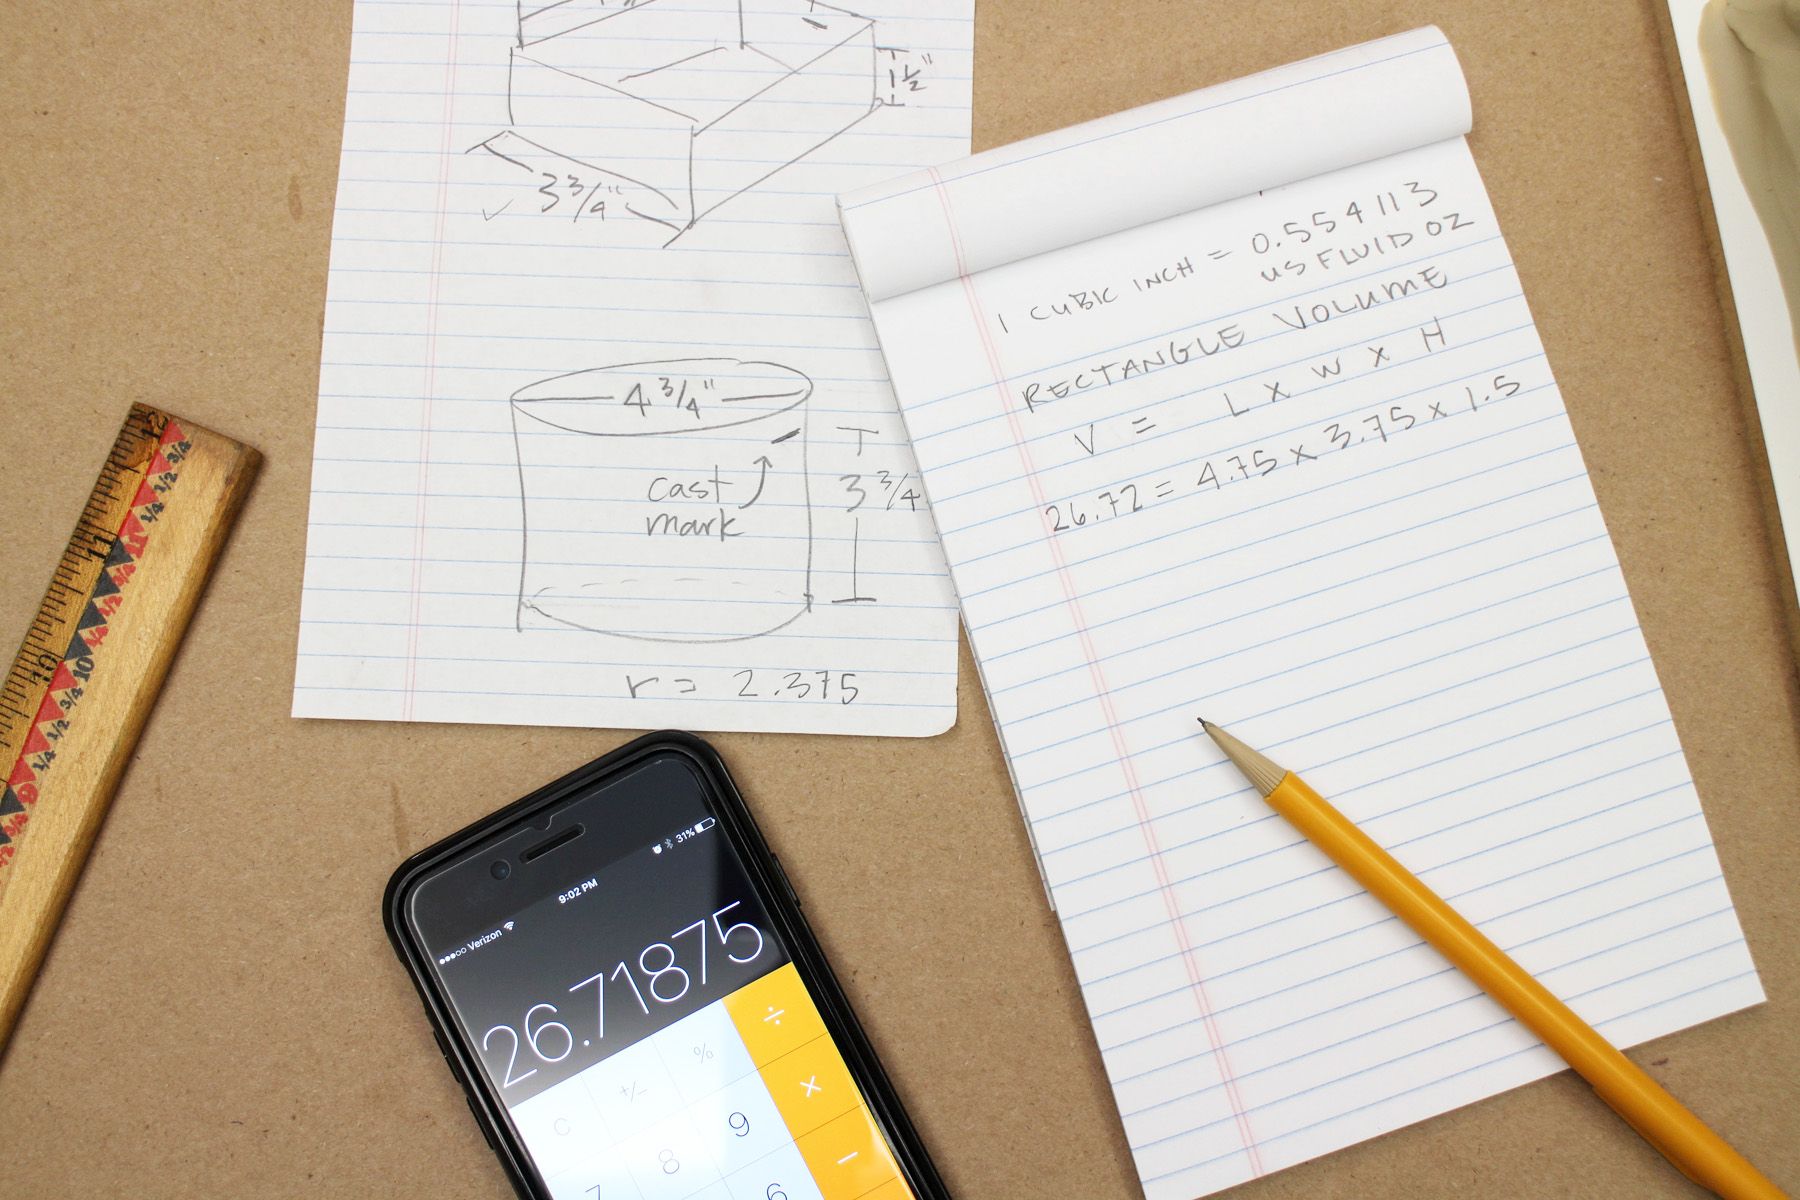 1½"
3¾"
4¾"
cast
mark
3¾
r = 2.375
1 CUBIC INCH = 0.554113
US FLUID OZ
RECTANGLE VOLUME
V = L x W x H
26.72 = 4.75 x 3.75 x 1.5
12
3/4
1/2
1/4
11
11
3/4
1/2
1/4
10
10
3/4
1/2
1/4
9
Verizon
9:02 PM
31%
26.71875
C +/- % ÷
7 8 9 ×
6 −